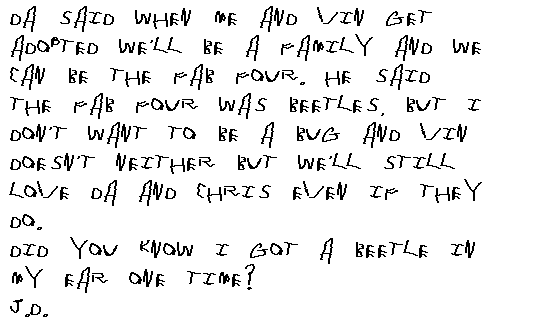 DA SAID WHEN ME AND VIN GET
ADOPTED WE'LL BE A FAMILY AND WE
CAN BE THE FAB FOUR. HE SAID
THE FAB FOUR WAS BEETLES, BUT I
DON'T WANT TO BE A BUG AND VIN
DOESN'T NEITHER BUT WE'LL STILL
LOVE DA AND CHRIS EVEN IF THEY
DO.
DID YOU KNOW I GOT A BEETLE IN
MY EAR ONE TIME?
J.D.